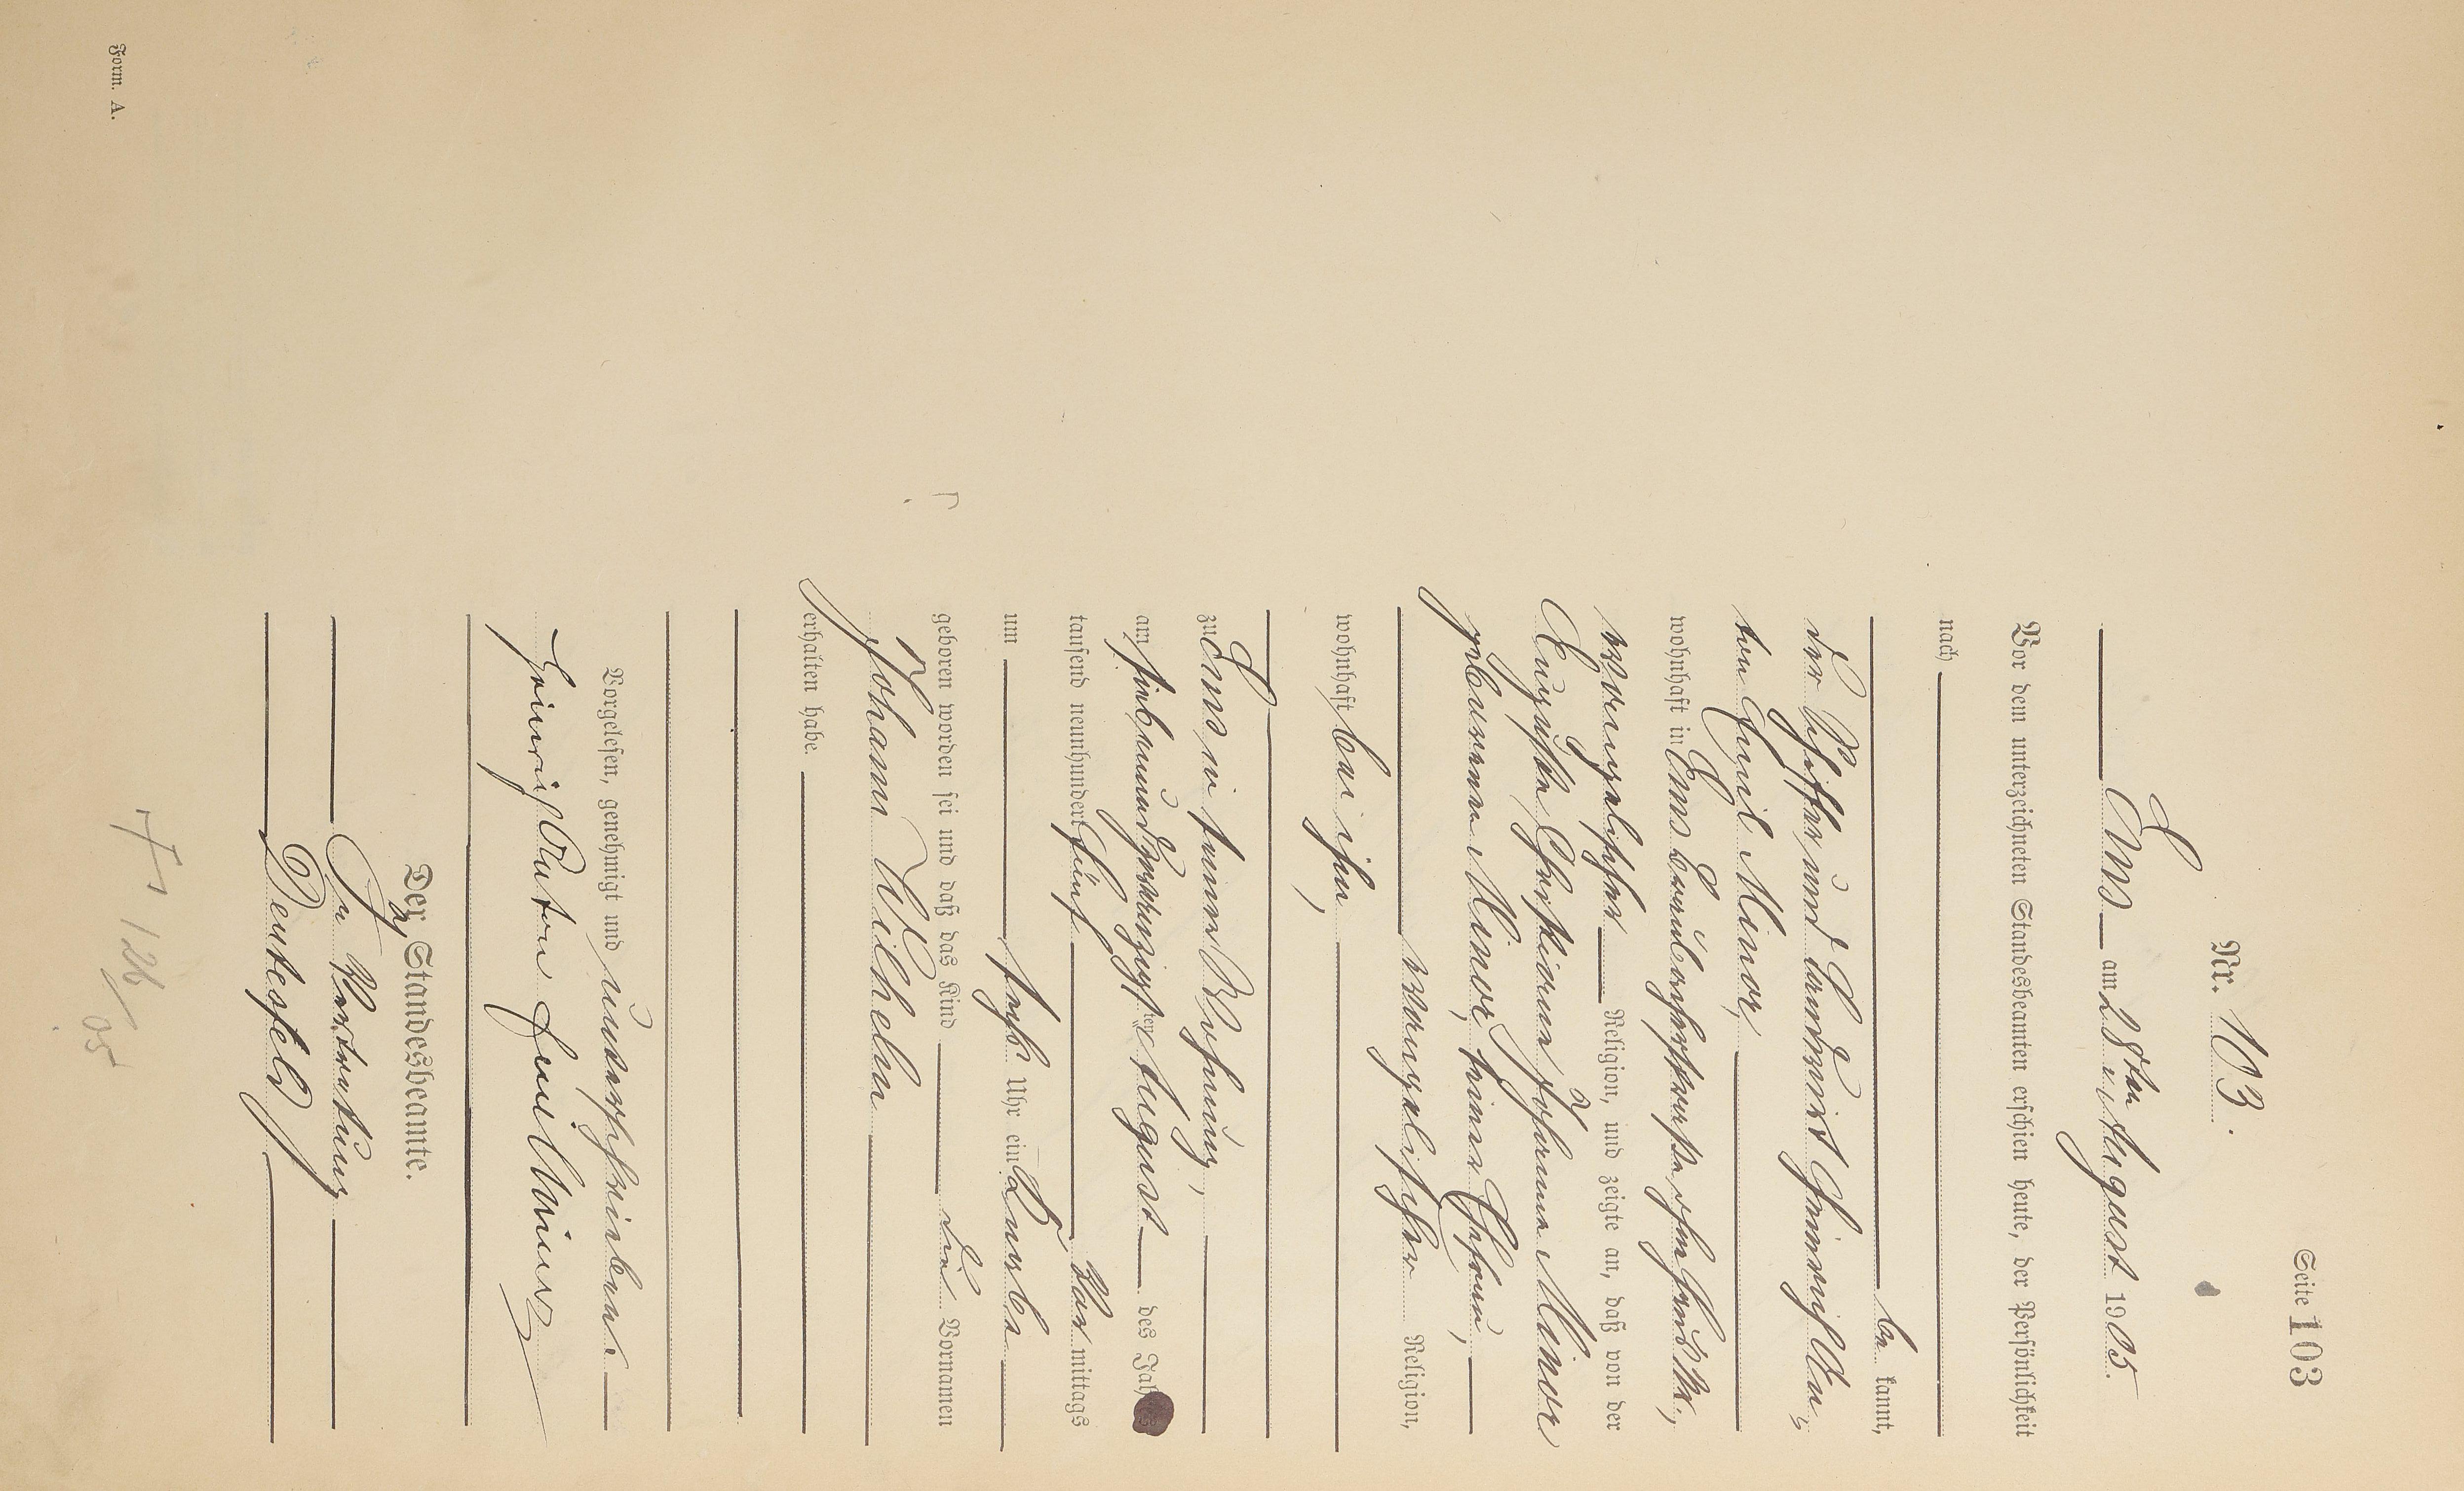 Seite 103
Nr. 103.
Ems am 28ten August 1905.
Vor dem unterzeichneten Standesbeamten erschien heute, der Persönlichkeit
nach
be kannt,
der Schiffer und Landwirt Heinrich An¬
ton Emil Minor,
wohnhaft in Ems
evangelischer Religion, und zeigte an, daß von der
Auguste Christiane Johanna Minor
geborenen Minor, seiner Ehefrau,
evangelischer Religion,
wohnhaft bei ihm,
zu Ems in seiner Wohnung,
am siebenundzwanzigsten August des Jahres
tausend neunhundert fünf Vormittags
um sechs Uhr ein Knabe
geboren worden sei und daß das Kind die Vornamen
Johann Wilhelm
erhalten habe.
Vorgelesen, genehmigt und unterschrieben.
Heinrich Anton Emil Minor
Der Standesbeamte.
In Vertretung
Deutesfeld
† 126/05
Form. A.